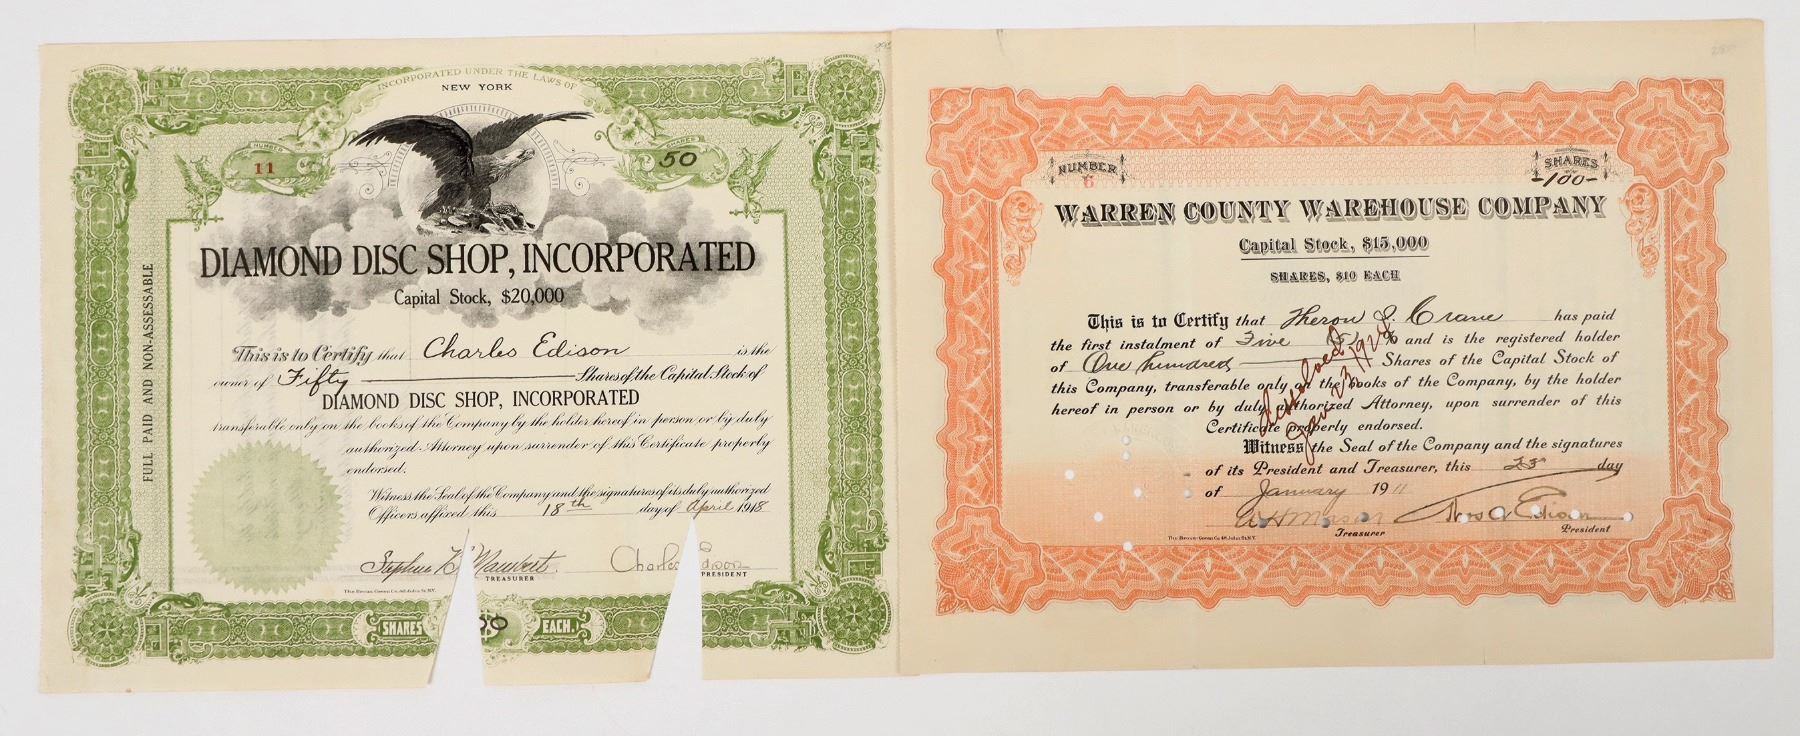 INCORPORATED UNDER THE LAWS OF
NEW YORK
NUMBER
11
SHARES
50
DIAMOND DISC SHOP, INCORPORATED
Capital Stock, $20,000
FULL PAID AND NON-ASSESSABLE
This is to Certify that Charles Edison is the
owner of Fifty Shares of the Capital Stock of
DIAMOND DISC SHOP, INCORPORATED
transferable only on the books of the Company by the holder hereof in person or by duly
authorized Attorney upon surrender of this Certificate properly
endorsed.
Witness the Seal of the Company and the signatures of its duly authorized
Officers affixed this 18th day of April 1918
Stephen B. Mambert Charles Edison
TREASURER PRESIDENT
The Broun-Green Co. 48 John St. N.Y.
SHARES $ 50 EACH.
NUMBER
6
SHARES
-100-
WARREN COUNTY WAREHOUSE COMPANY
Capital Stock, $15,000
SHARES, $10 EACH
This is to Certify that Theron I. Crane has paid
the first instalment of Five 5% and is the registered holder
of One hundred Shares of the Capital Stock of
this Company, transferable only on the books of the Company, by the holder
hereof in person or by duly authorized Attorney, upon surrender of this
Certificate properly endorsed.
Witness the Seal of the Company and the signatures
of its President and Treasurer, this 25 day
of January 1911
W H Mason Thos A Edison
Treasurer President
The Broun-Green Co. 48 John St. N.Y.